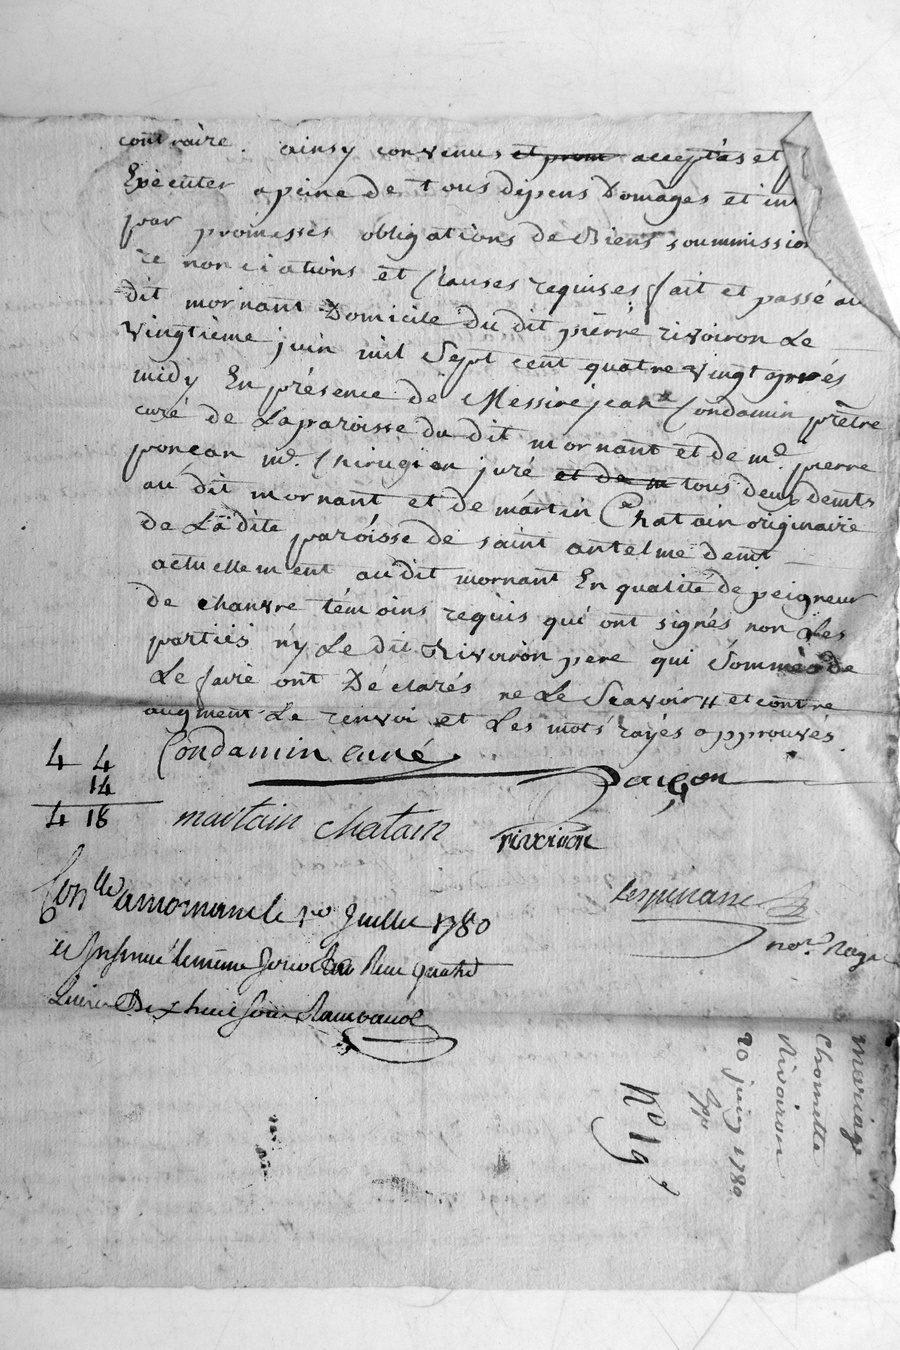 contraire. ainsy convenus et prom acceptés et
Executer a peine de tous dépens Domages et in
par promesses obligations de Biens soummission
re nonciations et Clauses requises fait et passé au
dit mornant Domicile du dit pierre rivoiron Le
vingtième juin mil Sept cent quatre vingt après
midy En présence de Messire jean Condamin prêtre
curé de La paroisse du dit mornant et de me. pierre
ponçon me. Chirugien juré et de m tous deux demts
au dit mornant et de mártin Chatain originaire
de Ladite paroisse de saint antelme demt
actuellement audit mornant En qualité de peigneur
de chanvre témoins requis qui ont signés non Les
parties ny Le dit Rivoiron pere qui Sommés de
Le faire ont Déclarés ne Le Scavoir # et contre
augment Le renvoi et Les mots rayés approuvés.
4 4
14
4 18
Condamin curé
Ponçon
martain chatain
rivoiron
Lespinasse
nore. Roya
Conlle a mornant le 1er Juillet 1780
et Insinué le même jour Reçu quatre
Livres Dix huit sous Rambaud
mariage
Chomette
Rivoiron
20 juin 1780
No 19